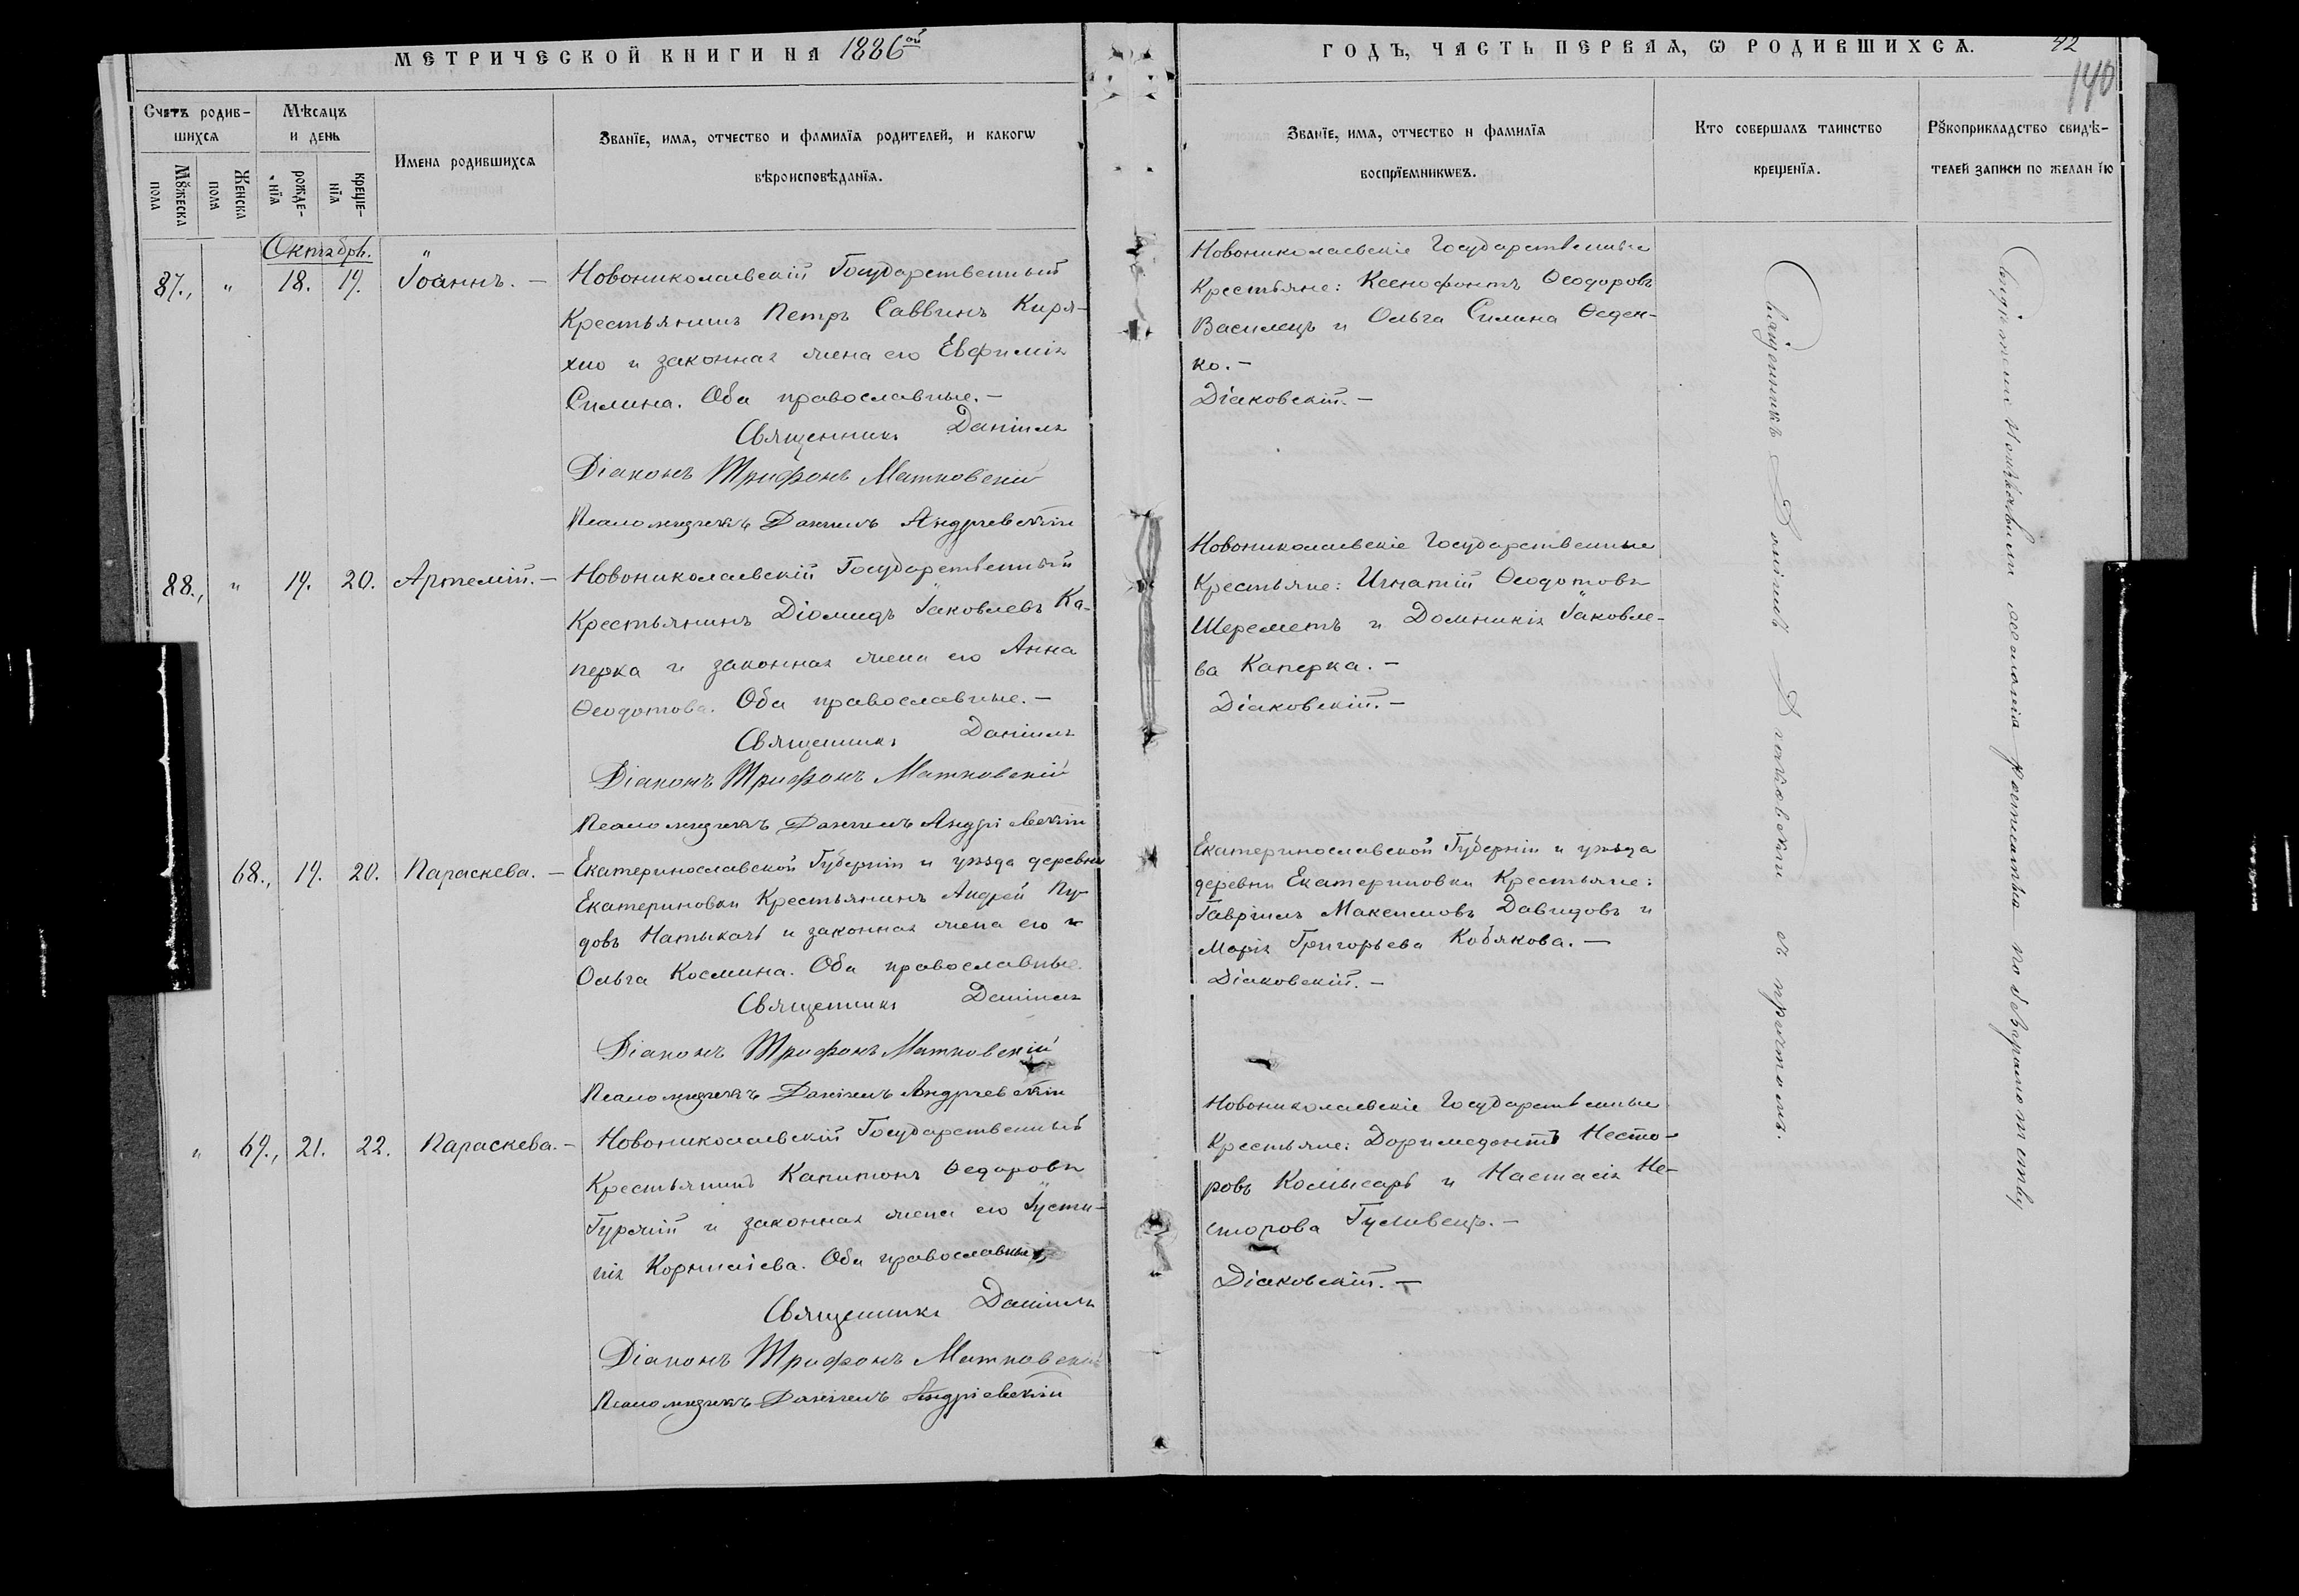 МЕТРИЧЕСКОЙ КНИГИ НА 1886ой
ГОДЪ, ЧАСТЬ ПЕРВАЯ, Ѡ РОДИВШИХСѦ.
42
140
Счетъ родив-
шихсѧ
Мѣсѧцъ
и день
Имена родившихсѧ
Званїе, имѧ, отчество и фамилїѧ родителей, и какогѡ
вѣроисповѣданїѧ.
Званїе, имѧ, отчество и фамилїѧ
воспрїемникѡвъ.
Кто совершалъ таинство
крещенїѧ.
Рꙋкоприкладство свидѣ-
телей записи по желанїю
Мꙋжеска
пола
Женска
пола
рожде-
нїѧ
креще-
нїѧ
Октябрь.
87., " 18. 19. Іоаннъ. —
Новониколаевскій Государственный
Крестьянинъ Петръ Саввинъ Киря-
хно и законная жена его Евфимія
Силина. Оба православные. —
Священникъ Даніилъ
Діаконъ Трифонъ Матковскій
Псаломщикъ Даніилъ Андріевскій
Новониколаевскіе Государственные
Крестьяне: Ксенофонтъ Ѳеодоровъ
Василецъ и Ольга Силина Ѳеден-
ко. —
Діаковскій. —
88., " 19. 20. Артемій. —
Новониколаевскій Государственный
Крестьянинъ Діомидъ Іаковлевъ Ка-
перка и законная жена его Анна
Ѳеодотова. Оба православные. —
Священникъ Даніилъ
Діаконъ Трифонъ Матковскій
Псаломщикъ Даніилъ Андріевскій
Новониколаевскіе Государственные
Крестьяне: Игнатій Ѳеодотовъ
Шереметъ и Домникія Іаковле-
ва Каперка. —
Діаковскій. —
68., 19. 20. Параскева. —
Екатеринославской Губерніи и уѣзда деревни
Екатериновки Крестьянинъ Андрей Пу-
довъ Натыкачъ и законная жена его
Ольга Космина. Оба православные.
Священникъ Даніилъ
Діаконъ Трифонъ Матковскій
Псаломщикъ Даніилъ Андріевскій
Екатеринославской Губерніи и уѣзда
деревни Екатериновки Крестьяне:
Гавріилъ Максимовъ Давидовъ и
Марія Григорьева Кобякова. —
Діаковскій. —
" 69., 21. 22. Параскева. —
Новониколаевскій Государственный
Крестьянинъ Капитонъ Ѳедоровъ
Гуржій и законная жена его Іусти-
нія Корниліева. Оба православные
Священникъ Даніилъ
Діаконъ Трифонъ Матковскій
Псаломщикъ Даніилъ Андріевскій
Новониколаевскіе Государственные
Крестьяне: Доримедонтъ Несто-
ровъ Комысаръ и Настасія Не-
сторова Гуливецъ. —
Діаковскій. —
Священникъ Даніилъ Діаковскій съ причтомъ.
росписатьсѧ по безграмотству